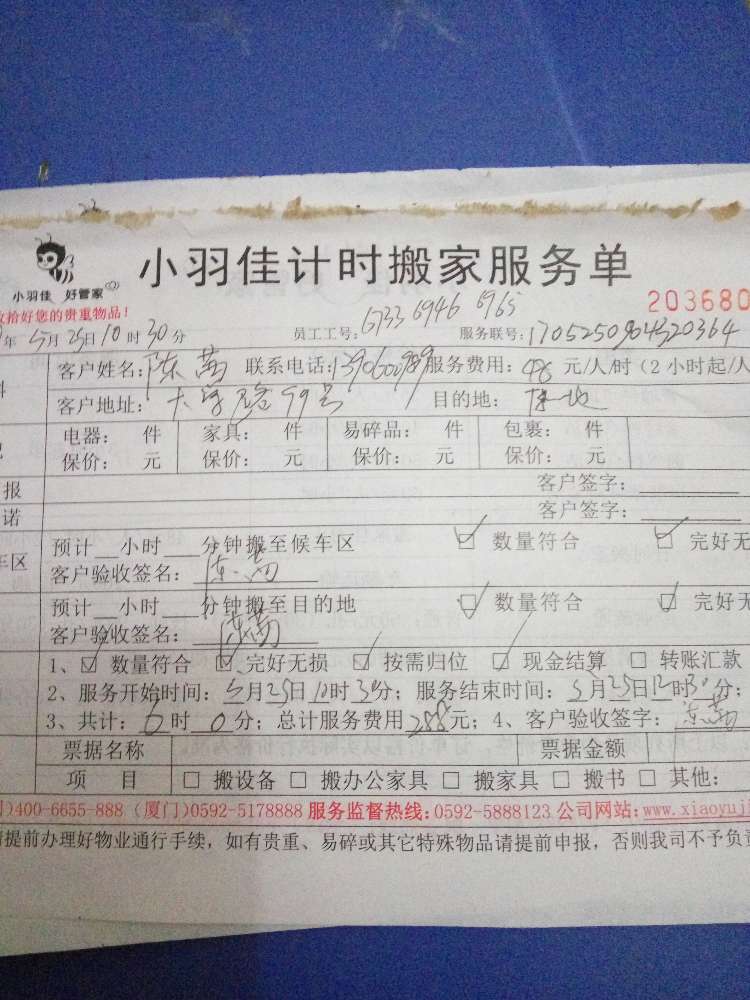 小羽佳计时搬家服务单
小羽佳 好管家
收拾好您的贵重物品！
203680
年5月25日10时30分 员工工号：6733 6946 6965 服务联号：1705250904320364
客户姓名： 联系电话： 服务费用：48元/人/时（2小时起/人
客户地址：大学路99号 目的地：
电器： 件 家具： 件 易碎品： 件 包裹： 件
保价： 元 保价： 元 保价： 元 保价： 元
报 客户签字：
诺 客户签字：
预计__小时__分钟搬至候车区 ☑ 数量符合 ☑ 完好无
车区 客户验收签名：
预计__小时__分钟搬至目的地 ☑ 数量符合 ☑ 完好无
客户验收签名：
1、☑ 数量符合 ☑ 完好无损 ☑ 按需归位 ☑ 现金结算 □ 转账汇款
2、服务开始时间：5月25日10时30分；服务结束时间：5月25日12时30分；
3、共计：6时0分；总计服务费用288元；4、客户验收签字：
票据名称 票据金额
项 目 □ 搬设备 □ 搬办公家具 □ 搬家具 □ 搬书 □ 其他：
)400-6655-888 (厦门)0592-5178888 服务监督热线:0592-5888123 公司网站:www.xiaoyuj
提前办理好物业通行手续，如有贵重、易碎或其它特殊物品请提前申报，否则我司不予负责